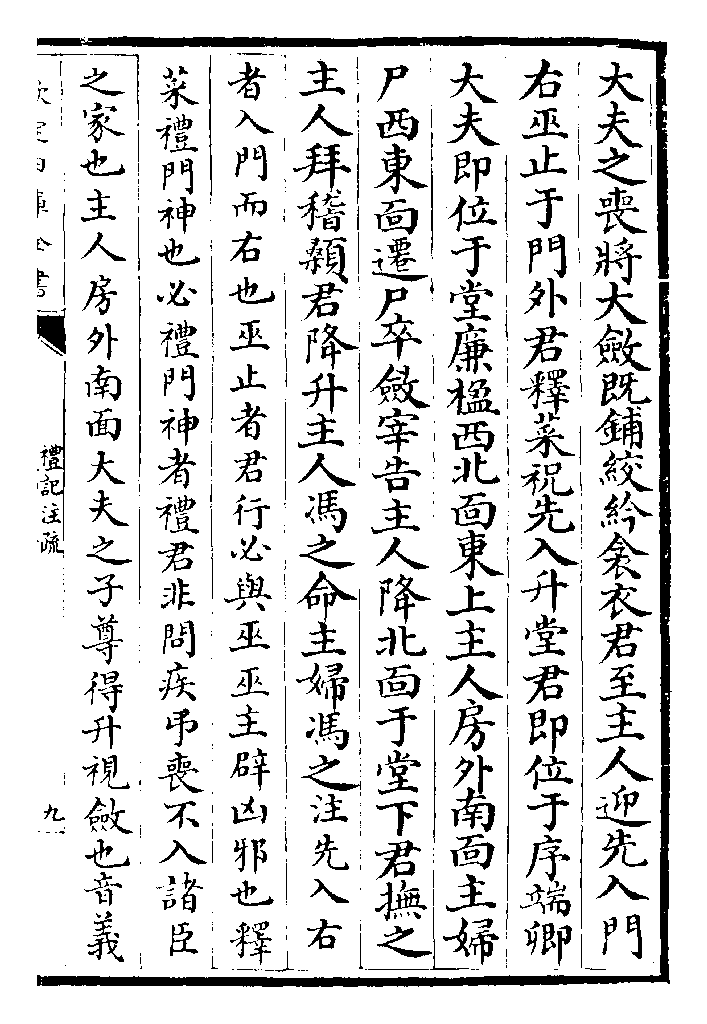 大夫之喪將大斂既鋪絞紟衾衣君至主人迎先入門
右巫止于門外君釋菜祝先入升堂君即位于序端卿
大夫即位于堂廉楹西北面東上主人房外南面主婦
尸西東面遷尸卒斂宰告主人降北面于堂下君撫之
主人拜稽顙君降升主人馮之命主婦馮之注先入右
者入門而右也巫止者君行必與巫巫主辟凶邪也釋
菜禮門神也必禮門神者禮君非問疾弔喪不入諸臣
之家也主人房外南面大夫之子尊得升視斂也音義
欽定四庫全書
禮記注疏
九